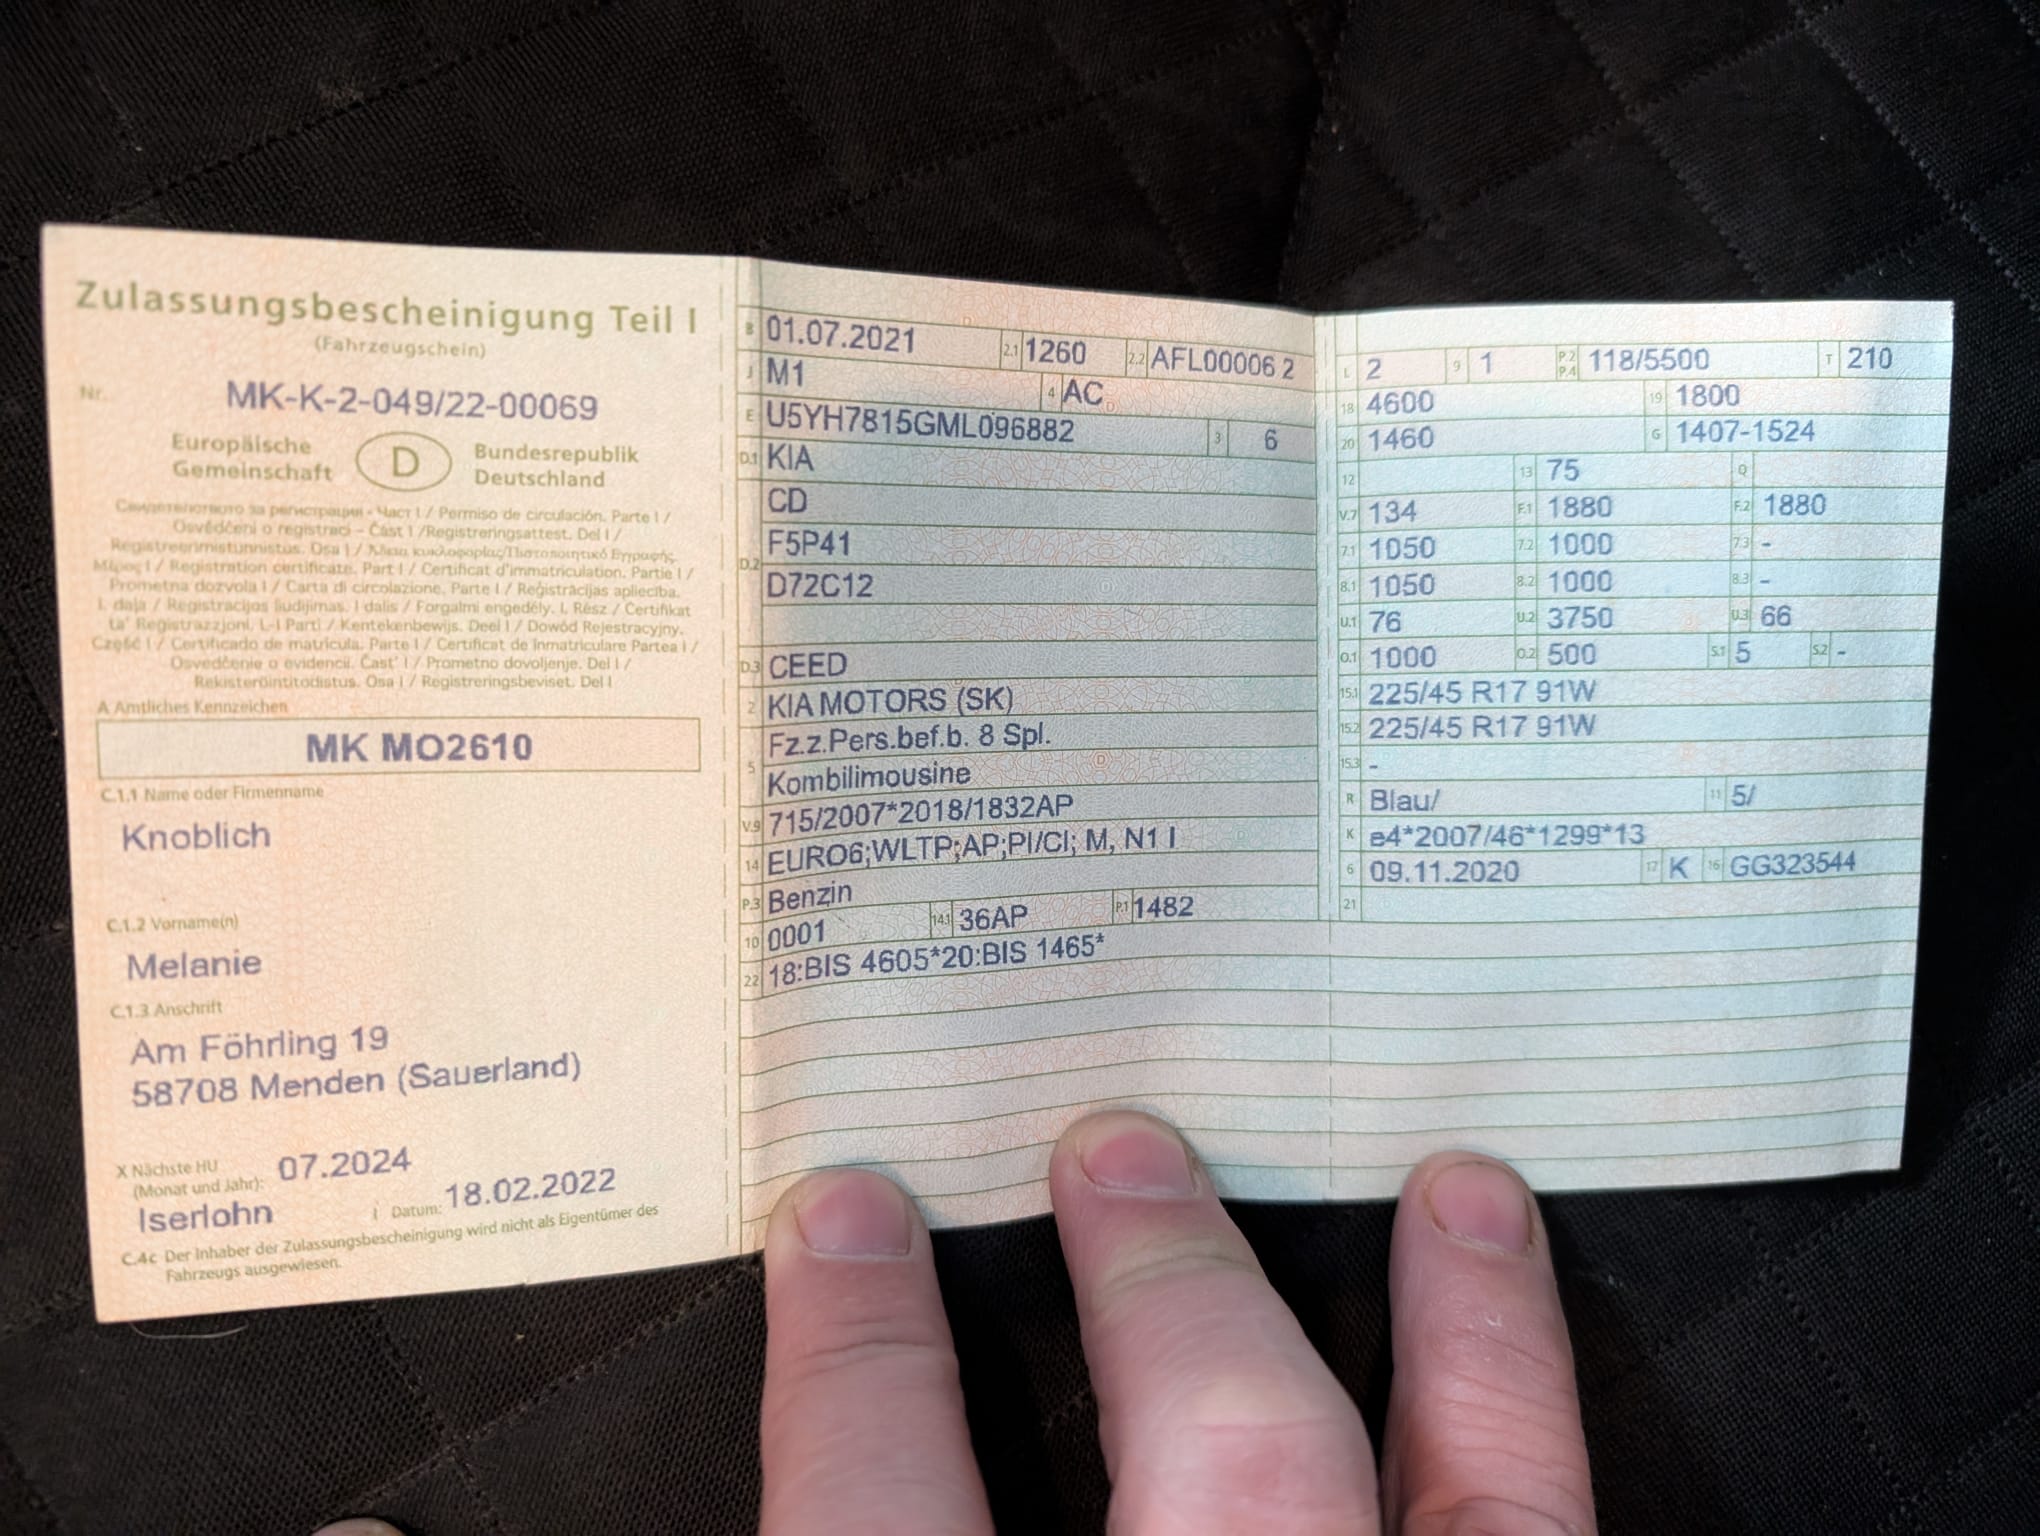 Zulassungsbescheinigung Teil I
(Fahrzeugschein)
Nr. MK-K-2-049/22-00069
Europäische Gemeinschaft
D
Bundesrepublik Deutschland
Свидетелството за регистрация - Част I / Permiso de circulación. Parte I /
Osvědčení o registraci – Část I /Registreringsattest. Del I /
Registreerimistunnistus. Osa I / Άδεια κυκλοφορίας/Πιστοποιητικό Εγγραφής.
Μέρος I / Registration certificate. Part I / Certificat d'immatriculation. Partie I /
Prometna dozvola I / Carta di circolazione. Parte I / Reģistrācijas apliecība.
I. daļa / Registracijos liudijimas. I dalis / Forgalmi engedély. I. Rész / Ċertifikat
ta' Reġistrazzjoni. L-I Parti / Kentekenbewijs. Deel I / Dowód Rejestracyjny.
Część I / Certificado de matrícula. Parte I / Certificat de înmatriculare Partea I /
Osvedčenie o evidencii. Časť I / Prometno dovoljenje. Del I /
Rekisteröintitodistus. Osa I / Registreringsbeviset. Del I
A Amtliches Kennzeichen
MK MO2610
C.1.1 Name oder Firmenname
Knoblich
C.1.2 Vorname(n)
Melanie
C.1.3 Anschrift
Am Föhrling 19
58708 Menden (Sauerland)
X Nächste HU
(Monat und Jahr): 07.2024
Iserlohn I Datum: 18.02.2022
C.4c Der Inhaber der Zulassungsbescheinigung wird nicht als Eigentümer des
Fahrzeugs ausgewiesen.
B 01.07.2021 2.1 1260 2.2 AFL00006 2
J M1 4 AC
E U5YH7815GML096882 3 6
D.1 KIA
CD
D.2 F5P41
D72C12
D.3 CEED
2 KIA MOTORS (SK)
5 Fz.z.Pers.bef.b. 8 Spl.
Kombilimousine
V.9 715/2007*2018/1832AP
14 EURO6;WLTP;AP;PI/CI; M, N1 I
P.3 Benzin
10 0001 14.1 36AP P.1 1482
22 18:BIS 4605*20:BIS 1465*
L 2 9 1 P.2 P.4 118/5500 T 210
18 4600 19 1800
20 1460 G 1407-1524
12 13 75 Q
V.7 134 F.1 1880 F.2 1880
7.1 1050 7.2 1000 7.3 -
8.1 1050 8.2 1000 8.3 -
U.1 76 U.2 3750 U.3 66
O.1 1000 O.2 500 S.1 5 S.2 -
15.1 225/45 R17 91W
15.2 225/45 R17 91W
15.3 -
R Blau/ 11 5/
K e4*2007/46*1299*13
6 09.11.2020 17 K 16 GG323544
21